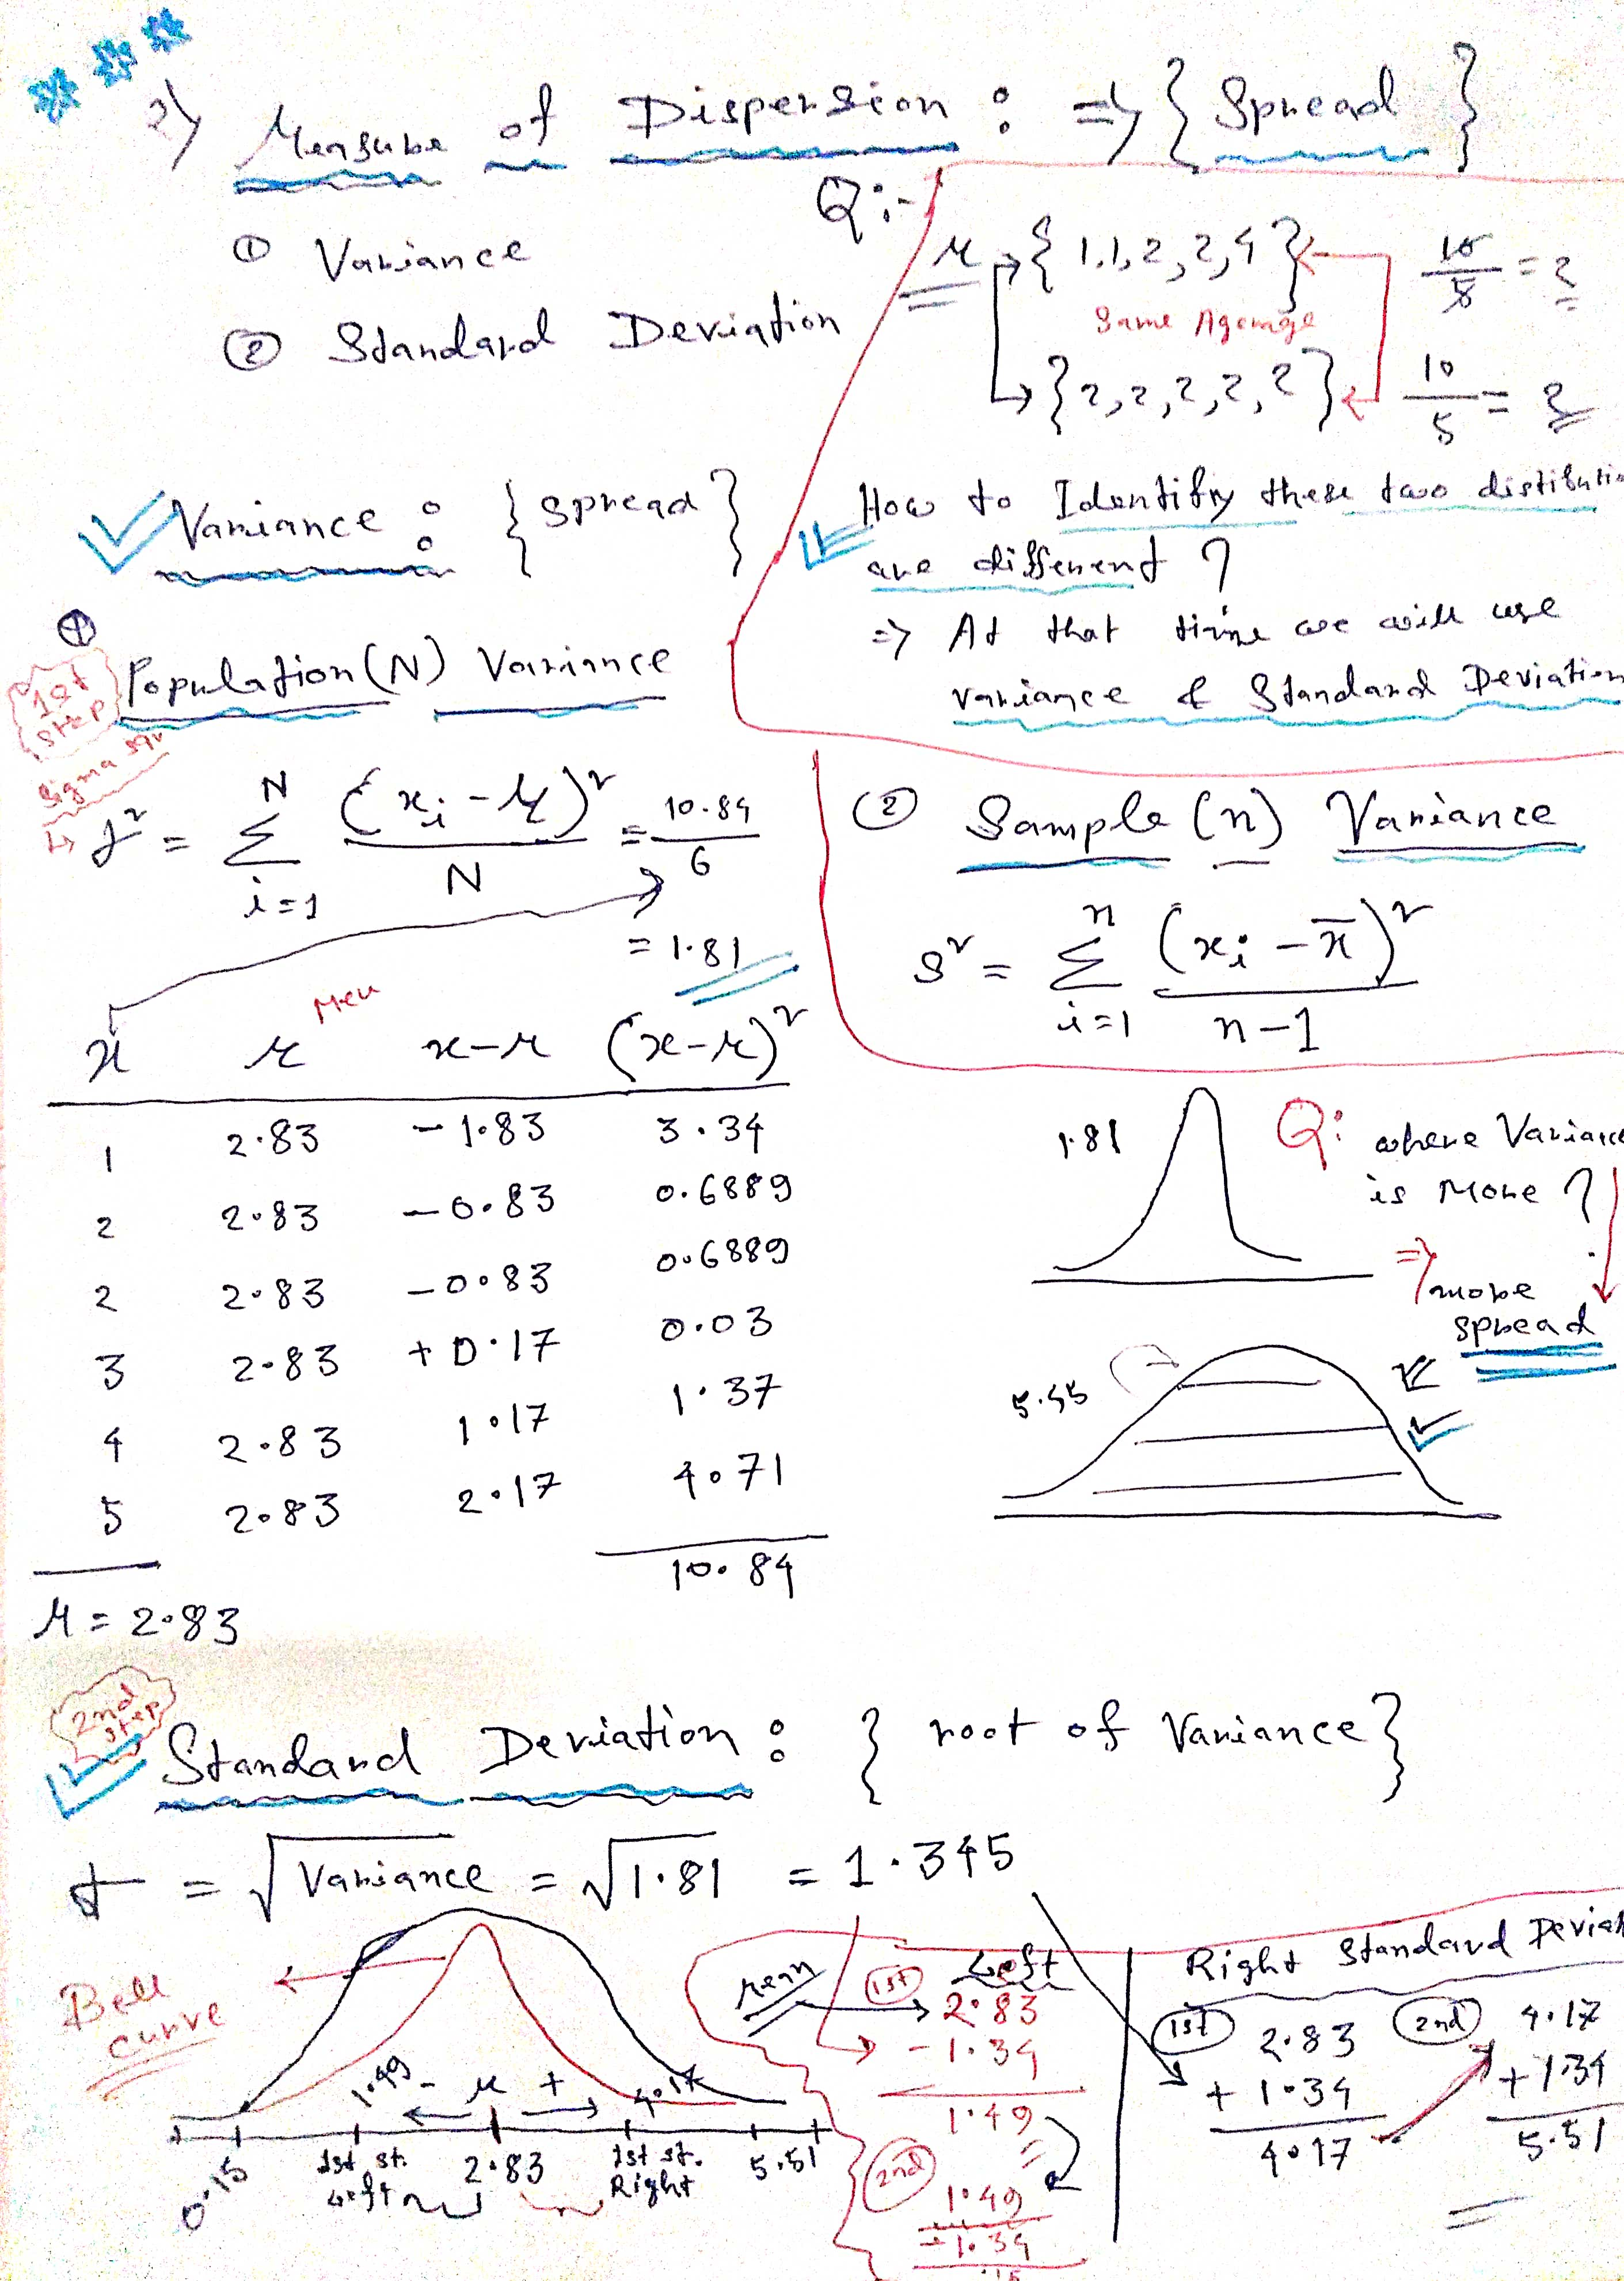 2) Measure of Dispersion : => { Spread }
① Variance
② Standard Deviation
Q:-
μ → { 1,1,2,2,4 } 10/5 = 2
Same Agerage
→ { 2,2,2,2,2 } 10/5 = 2
How to Identify these two distributio
are different ?
=> At that time we will use
variance & Standard Deviation
Variance : { spread }
① Population (N) Variance
1st step
Sigma sqr
σ² = Σ_{i=1}^{N} (xi - μ)² / N = 10.84 / 6
= 1.81
② Sample (n) Variance
s² = Σ_{i=1}^{n} (xi - x̄)² / n-1
Meu
x μ x-μ (x-μ)²
1 2.83 -1.83 3.34
2 2.83 -0.83 0.6889
2 2.83 -0.83 0.6889
3 2.83 +0.17 0.03
4 2.83 1.17 1.37
5 2.83 2.17 4.71
10.84
μ = 2.83
1.81
Q: where Variance
is More ?
=> more
spread
5.55
2nd step
Standard Deviation : { root of Variance }
σ = √Variance = √1.81 = 1.345
Bell
curve
1.49 - μ + 4.17
0.15 1st st. Left 2.83 1st st. Right 5.51
mean
1st Left
2.83
- 1.34
1.49
2nd
1.49
- 1.34
.15
Right Standard Deviat
1st 2.83
+ 1.34
4.17
2nd 4.17
+ 1.34
5.51